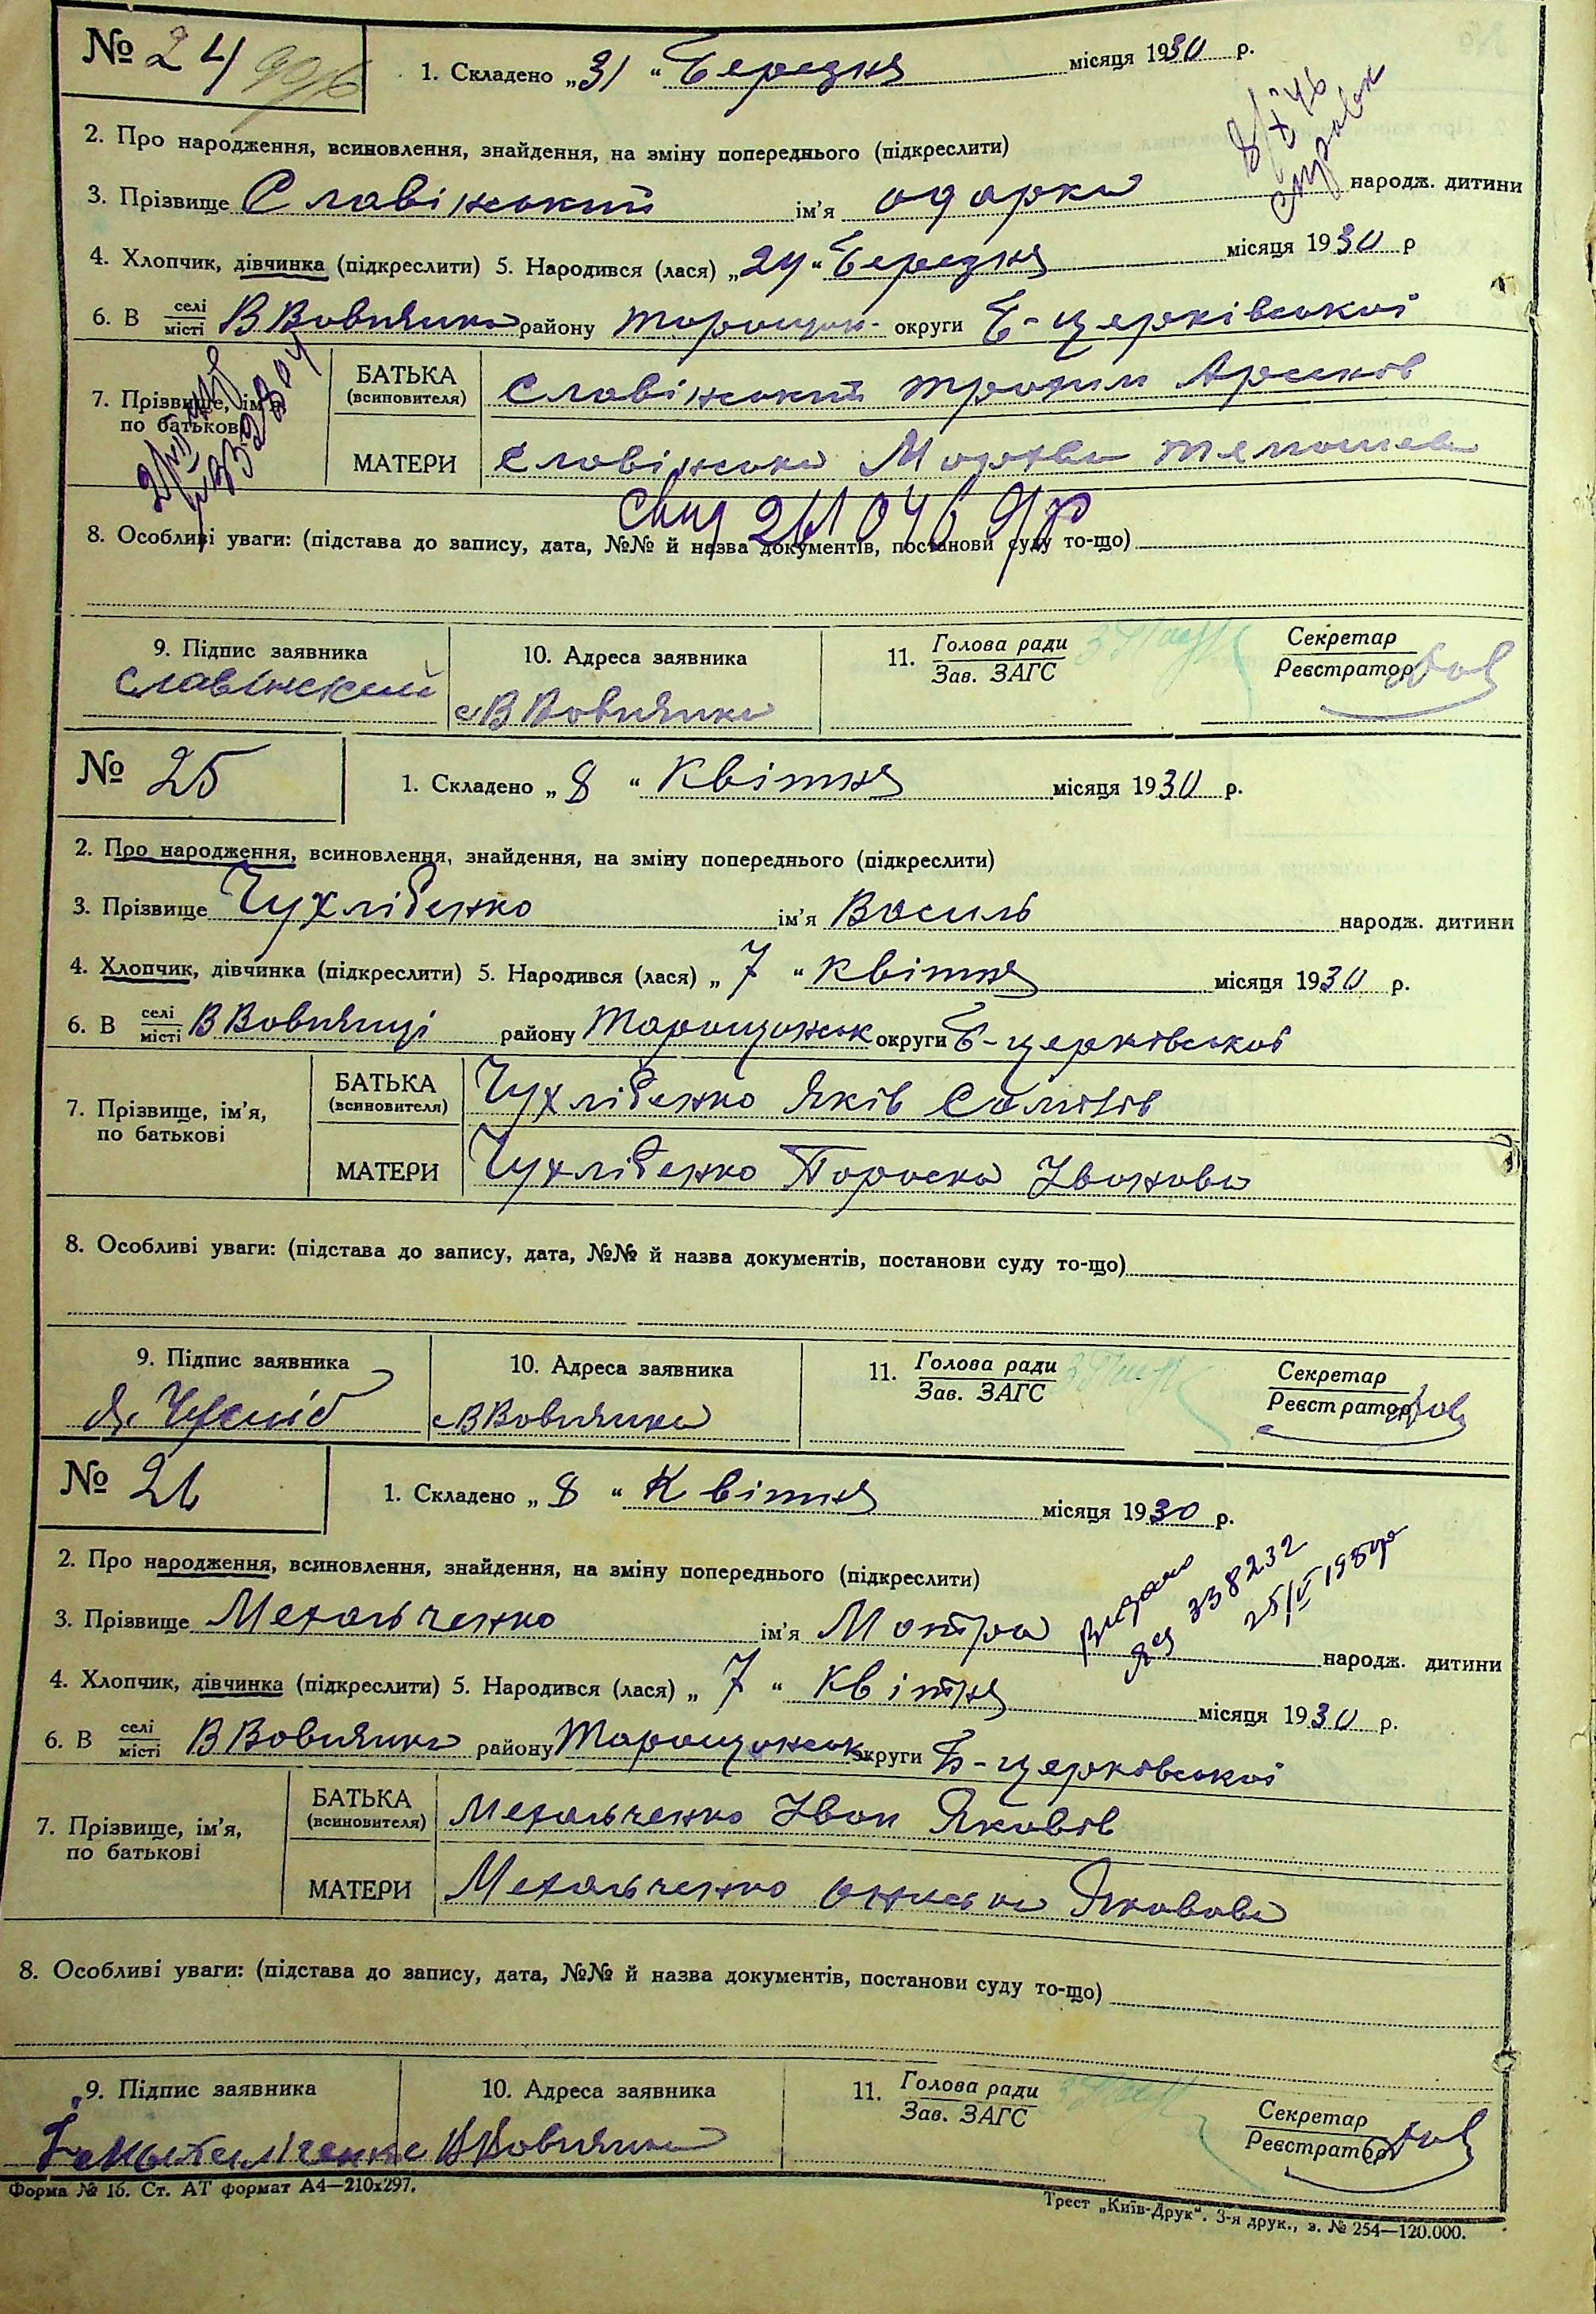 № 24
1. Складено „31“ Березня місяця 1930 р.
2. Про народження, всиновлення, знайдення, на зміну попереднього (підкреслити)
3. Прізвище Славінський ім'я одарка народж. дитини
4. Хлопчик, дівчинка (підкреслити) 5. Народився (лася) „24“ Березня місяця 1930 р
6. В селі місті В Вовнянка району Таращан- округи Б-церківської
7. Прізвище, ім'я по батькові
БАТЬКА (всиновителя) Славінський трохим
МАТЕРИ Славінська
8. Особливі уваги: (підстава до запису, дата, №№ й назва документів, постанови суду то-що)
9. Підпис заявника
Славінский
10. Адреса заявника
с В Вовнянка
11. Голова ради
Зав. ЗАГС
Секретар
Реєстратор
№ 25
1. Складено „8“ Квітня місяця 1930 р.
2. Про народження, всиновлення, знайдення, на зміну попереднього (підкреслити)
3. Прізвище Чухлібенко ім'я Василь народж. дитини
4. Хлопчик, дівчинка (підкреслити) 5. Народився (лася) „7“ квітня місяця 1930 р.
6. В селі місті В Вовнянці району Таращанськ округи Б-церківської
7. Прізвище, ім'я, по батькові
БАТЬКА (всиновителя) Чухлібенко Яків
МАТЕРИ Чухлібенко Параска Іванова
8. Особливі уваги: (підстава до запису, дата, №№ й назва документів, постанови суду то-що)
9. Підпис заявника
10. Адреса заявника
с В Вовнянка
11. Голова ради
Зав. ЗАГС
Секретар
Реєстратор
№ 26
1. Складено „8“ Квітня місяця 1930 р.
2. Про народження, всиновлення, знайдення, на зміну попереднього (підкреслити)
Видано
338232
25/V 1954р
3. Прізвище Мехальченко ім'я Мотря народж. дитини
4. Хлопчик, дівчинка (підкреслити) 5. Народився (лася) „7“ Квітня місяця 1930 р.
6. В селі місті В Вовнянка району Таращанськ округи Б-церковської
7. Прізвище, ім'я, по батькові
БАТЬКА (всиновителя) Мехальченко Іван Яковів
МАТЕРИ Мехальченко Яковова
8. Особливі уваги: (підстава до запису, дата, №№ й назва документів, постанови суду то-що)
9. Підпис заявника
10. Адреса заявника
В Вовнянка
11. Голова ради
Зав. ЗАГС
Секретар
Реєстратор
Форма № 16. Ст. АТ формат А4—210х297.
Трест „Київ-Друк“. 3-я друк., з. № 254—120.000.